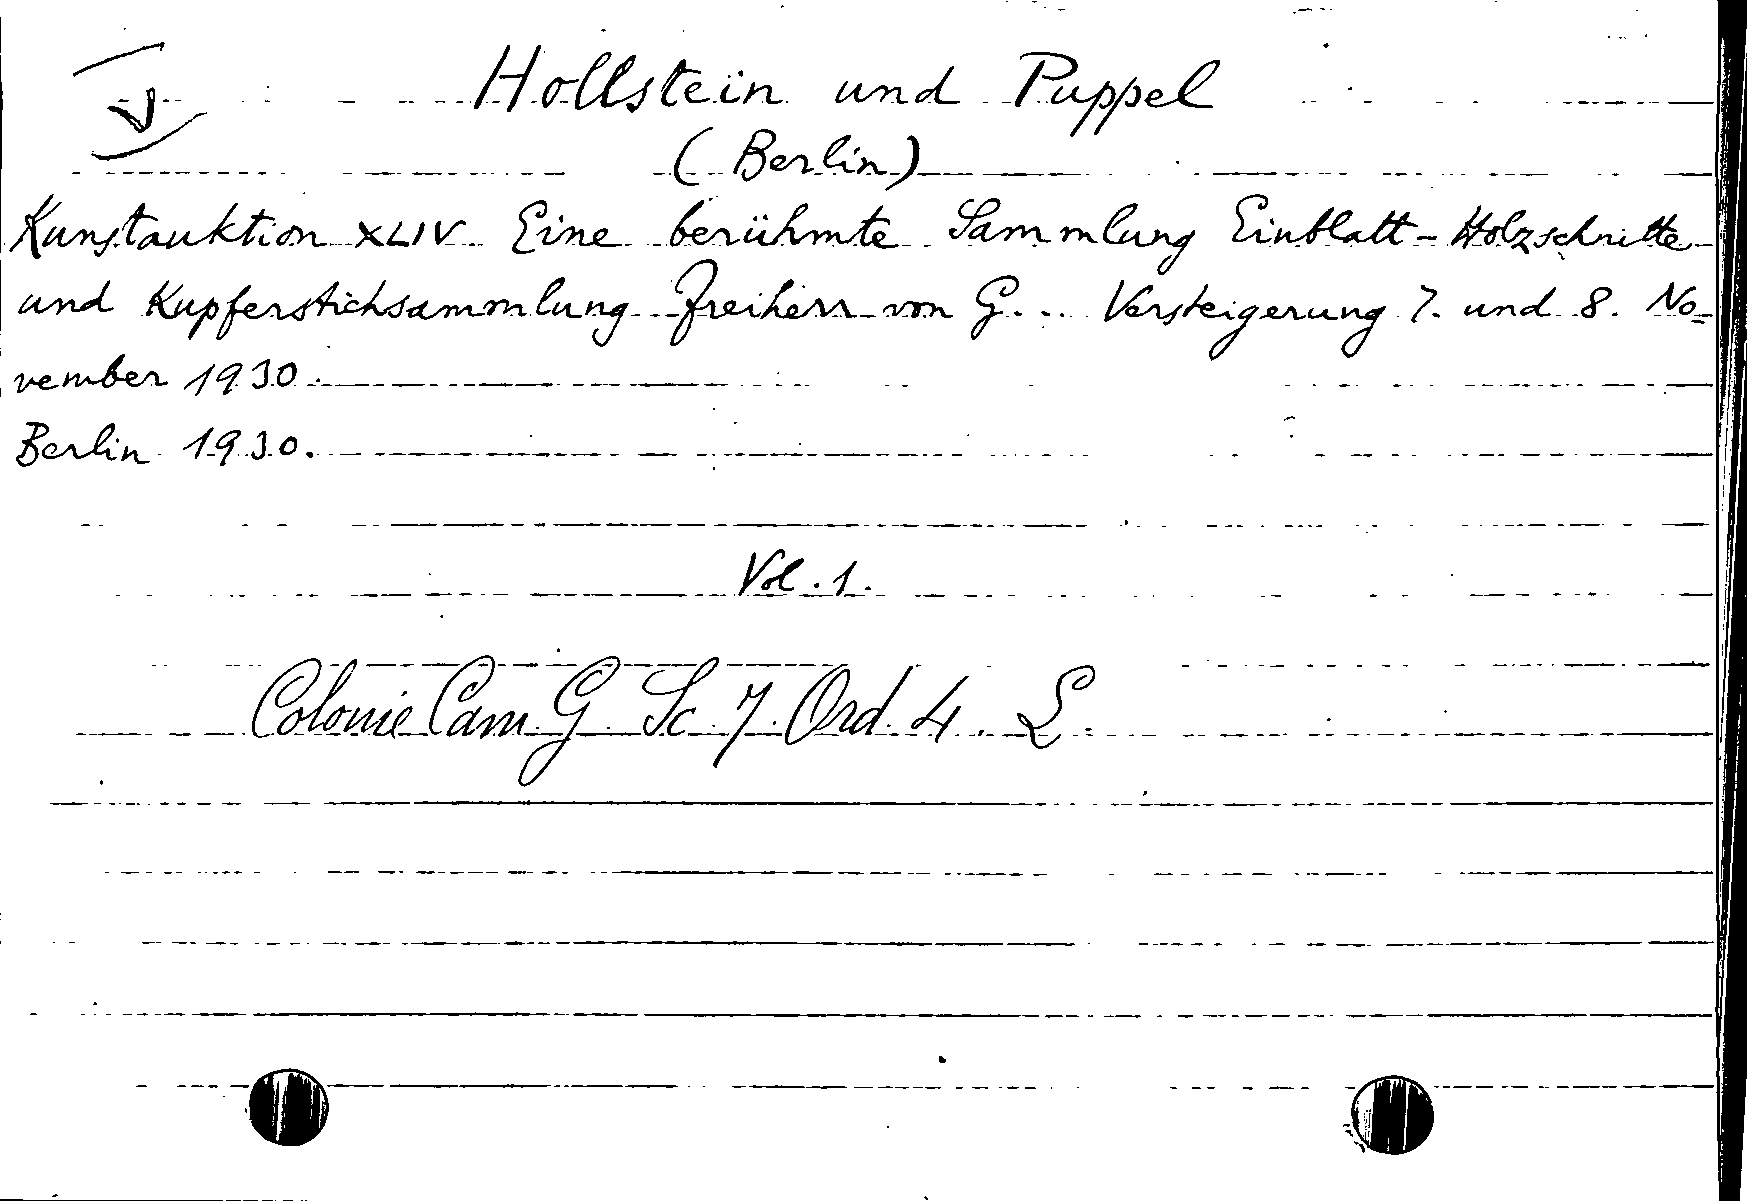 Hollstein und Puppel
(Berlin)
Kunstauktion XLIV Eine berühmte Sammlung Einblatt-Holzschnitte
und Kupferstichsammlung Freiherr von G... Versteigerung 7. und 8. No=
vember 1930.
Berlin 1930.
Vol. 1.
Colonie Cam G Sc 7 Ord. 4. L.